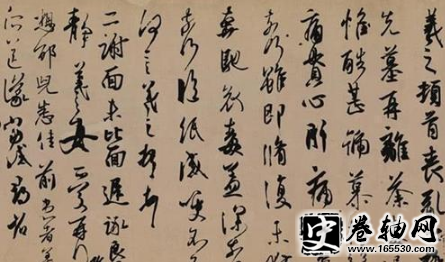 羲之頓首喪亂
先墓再離荼
惟酷甚號慕
痛貫心肝痛
奈何雖即脩復未
奔馳哀毒益深奈
奈何臨紙感哽不知
何言羲之頓首
二謝面未比面遲詠良
靜羲之女愛再拜
想邰兒悉佳前患者善
史卷轴网
www.165530.com